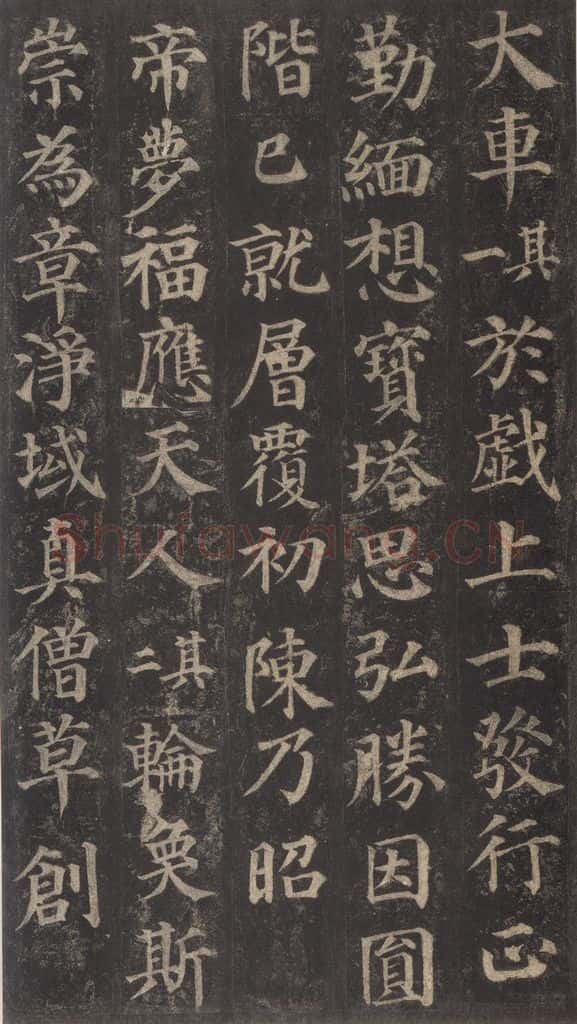 大車其一於戯上士發行正
勤緬想寶塔思弘勝因圓
階已就層覆初陳乃昭
帝夢福應天人其二輪奐斯
崇為章淨域真僧草創
Shufawang.CN